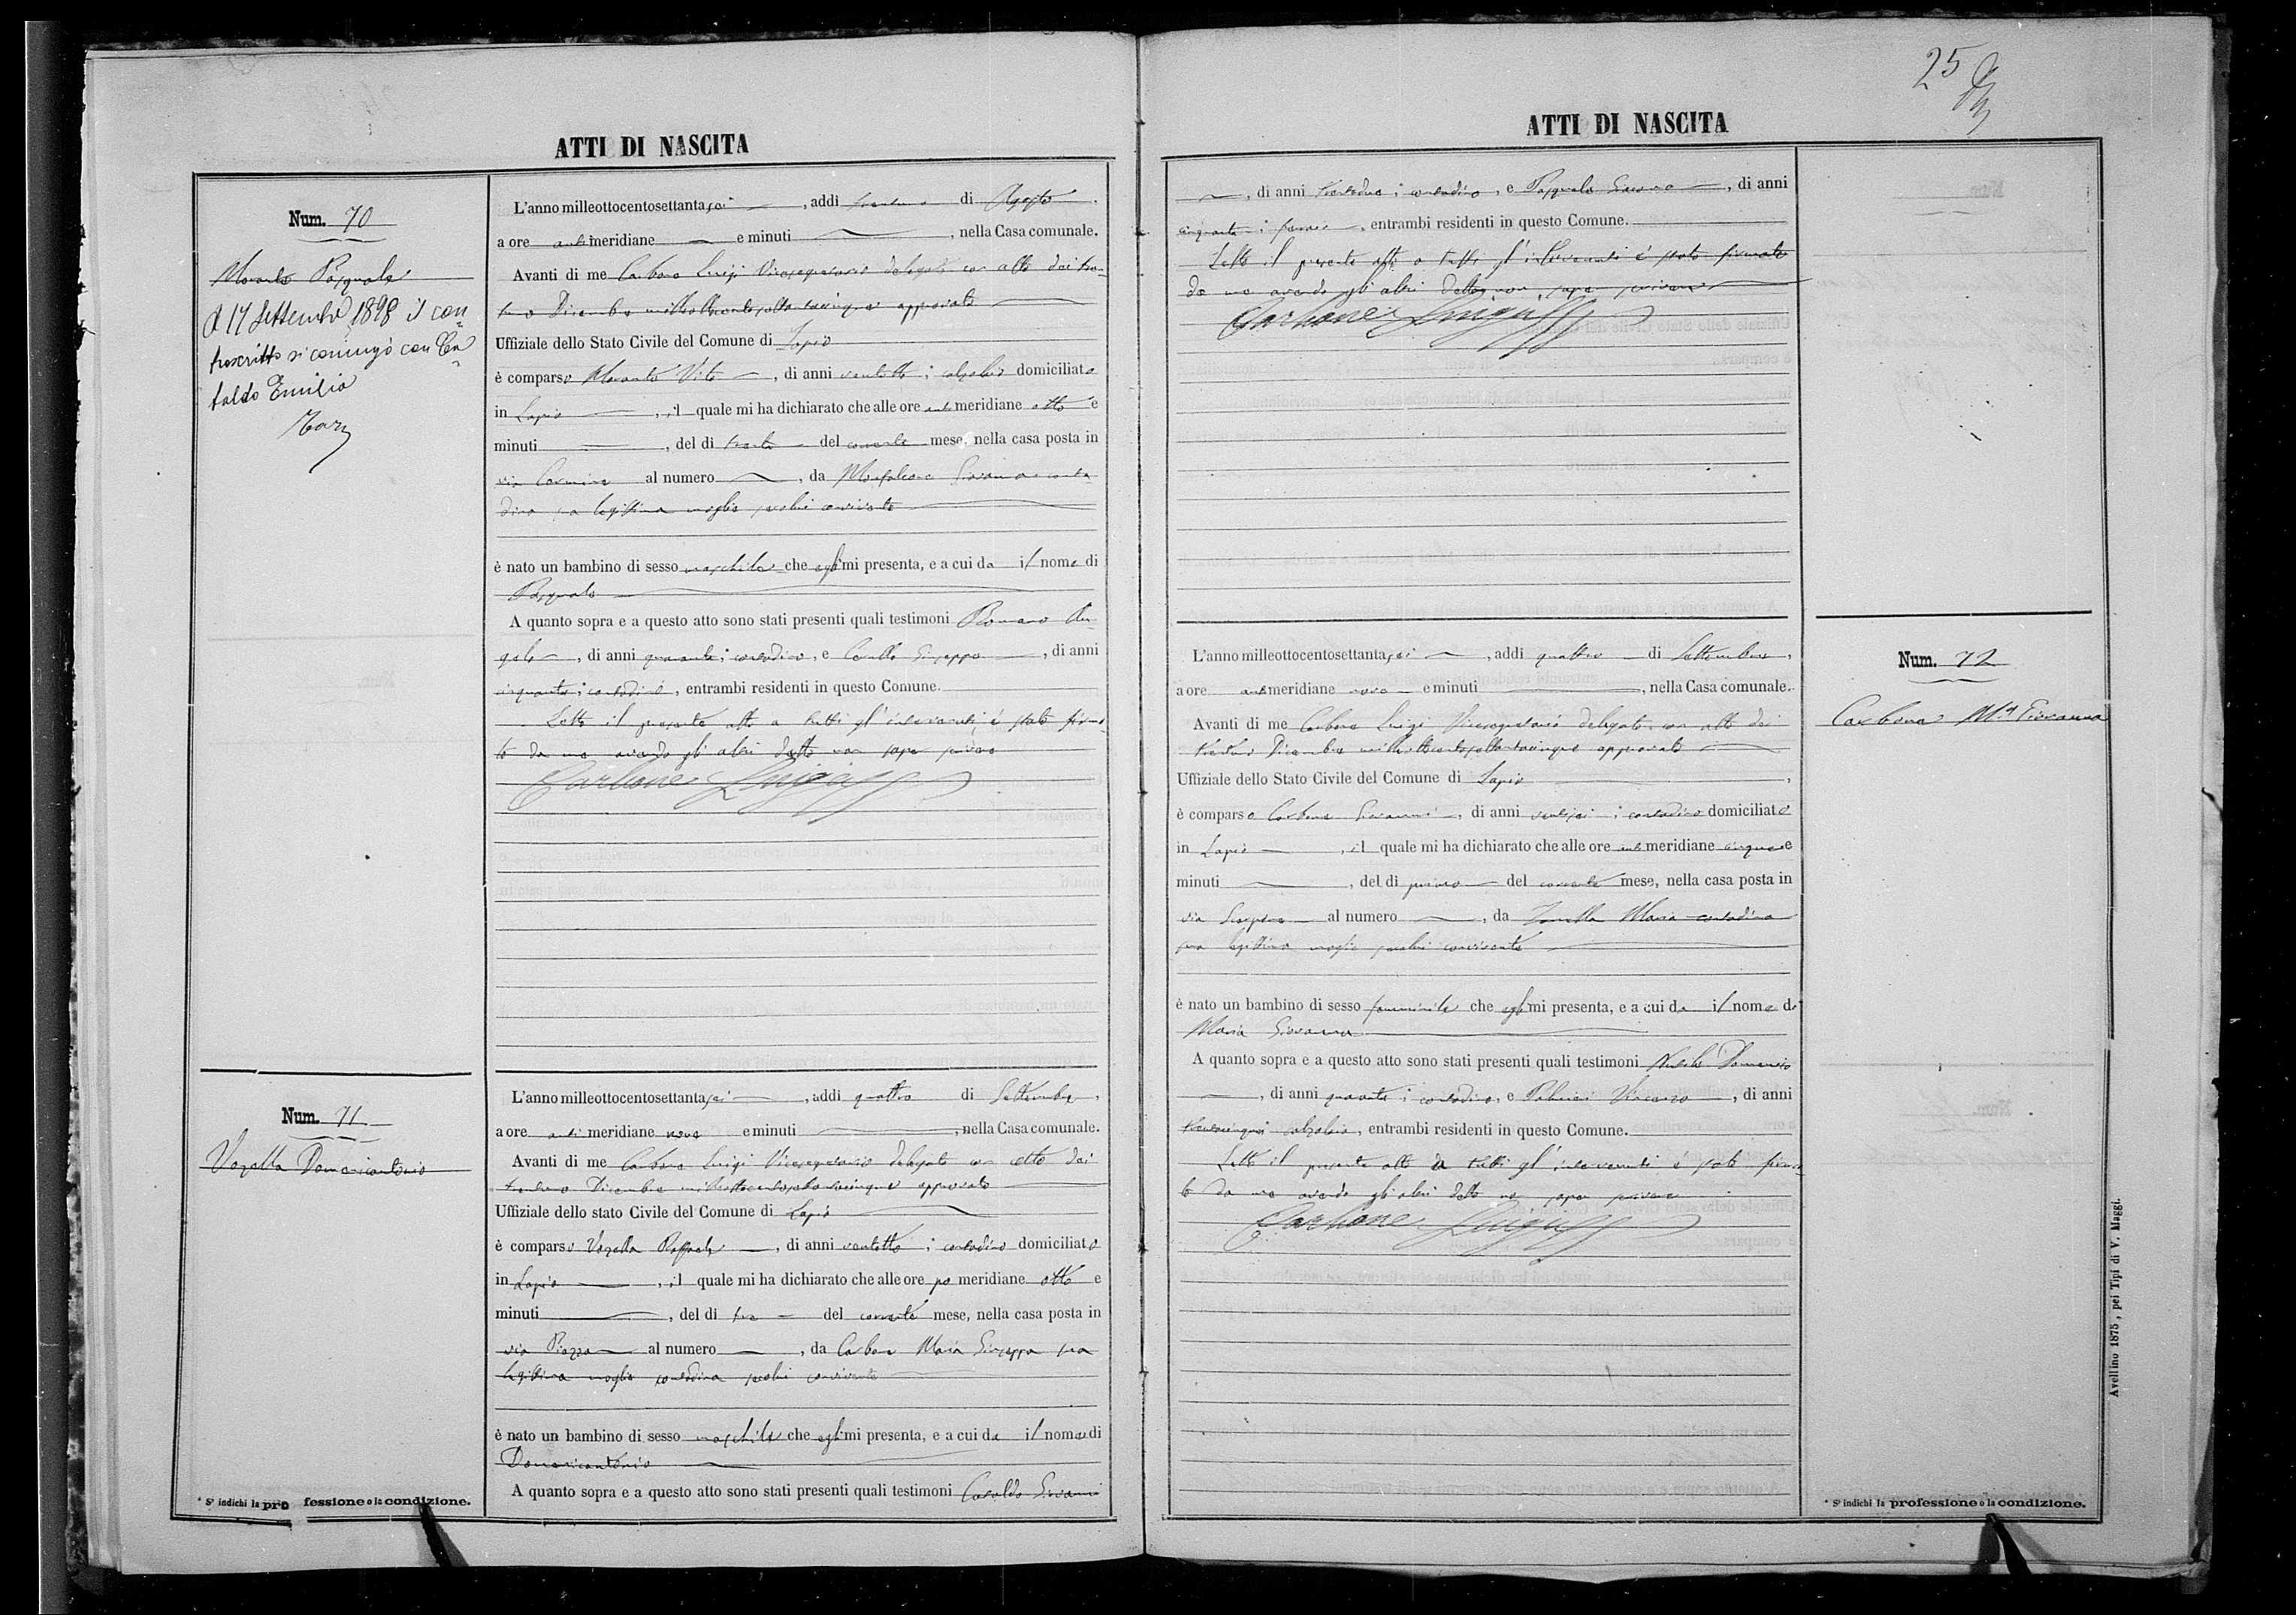 25
ATTI DI NASCITA
Num. 70
Pasquale
A 17 Settembre 1898 il con
troscritto si coniugò con Ca
taldo Emilia
L'anno milleottocentosettantasei, addì trentuno di Agosto,
a ore antimeridiane e minuti, nella Casa comunale.
Avanti di me Carbone Luigi Vicesegretario delegato con atto dei tren-
tuno Dicembre milleottocentosettantacinque approvato
Uffiziale dello Stato Civile del Comune di Lapio
è comparso Vito, di anni ventotto; calzolaio domiciliato
in Lapio, il quale mi ha dichiarato che alle ore antimeridiane otto e
minuti, del dì trenta del corrente mese, nella casa posta in
via Carmine al numero, da Giovanna conta
dina sua legittima moglie seco lui convivente
è nato un bambino di sesso maschile che egli mi presenta, e a cui da il nome di
Pasquale
A quanto sopra e a questo atto sono stati presenti quali testimoni Romano An-
gelo, di anni quaranta; contadino, e Giuseppe, di anni
cinquanta; contadino, entrambi residenti in questo Comune.
Letto il presente atto a tutti gl'intervenuti, è stato firma
to da me avendo gli altri detto non saper scrivere
Carbone Luigi
Num. 71
Vozella Domenicantonio
L'anno milleottocentosettantasei, addì quattro di Settembre,
a ore antimeridiane nove e minuti, nella Casa comunale.
Avanti di me Carbone Luigi Vicesegretario delegato con atto dei
trentuno Dicembre milleottocentosettantacinque approvato
Uffiziale dello stato Civile del Comune di Lapio
è comparso Vozella Raffaele, di anni ventotto; contadino domiciliato
in Lapio, il quale mi ha dichiarato che alle ore pomeridiane otto e
minuti, del dì tre del corrente mese, nella casa posta in
via Piazza al numero, da Carbone Maria Giuseppa sua
legittima moglie contadina seco lui convivente
è nato un bambino di sesso maschile che egli mi presenta, e a cui da il nome di
Domenicantonio
A quanto sopra e a questo atto sono stati presenti quali testimoni Cataldo Giovanni
* Si indichi la professione o la condizione.
ATTI DI NASCITA
, di anni trentadue; contadino, e Pasquale, di anni
cinquanta;, entrambi residenti in questo Comune.
Letto il presente atto a tutti gl'intervenuti è stato firmato
da me avendo gli altri detto non saper scrivere
Carbone Luigi
Num. 72
Carbone M.a Giovanna
L'anno milleottocentosettantasei, addì quattro di Settembre,
a ore antimeridiane nove e minuti, nella Casa comunale.
Avanti di me Carbone Luigi Vicesegretario delegato con atto dei
trentuno Dicembre milleottocentosettantacinque approvato
Uffiziale dello Stato Civile del Comune di Lapio,
è comparso Carbone Giovanni, di anni ventisei; contadino domiciliato
in Lapio, il quale mi ha dichiarato che alle ore antimeridiane cinque e
minuti, del dì primo del corrente mese, nella casa posta in
via al numero, da Maria contadina
sua legittima moglie seco lui convivente
è nato un bambino di sesso femminile che egli mi presenta, e a cui da il nome di
Maria Giovanna
A quanto sopra e a questo atto sono stati presenti quali testimoni Domenico
, di anni quaranta; contadino, e Vincenzo, di anni
trentacinque; calzolaio, entrambi residenti in questo Comune.
Letto il presente atto a tutti gl'intervenuti è stato firma-
to da me avendo gli altri detto non saper scrivere
Carbone Luigi
* Si indichi la professione o la condizione.
Avellino 1875, pei Tipi di V. Maggi.